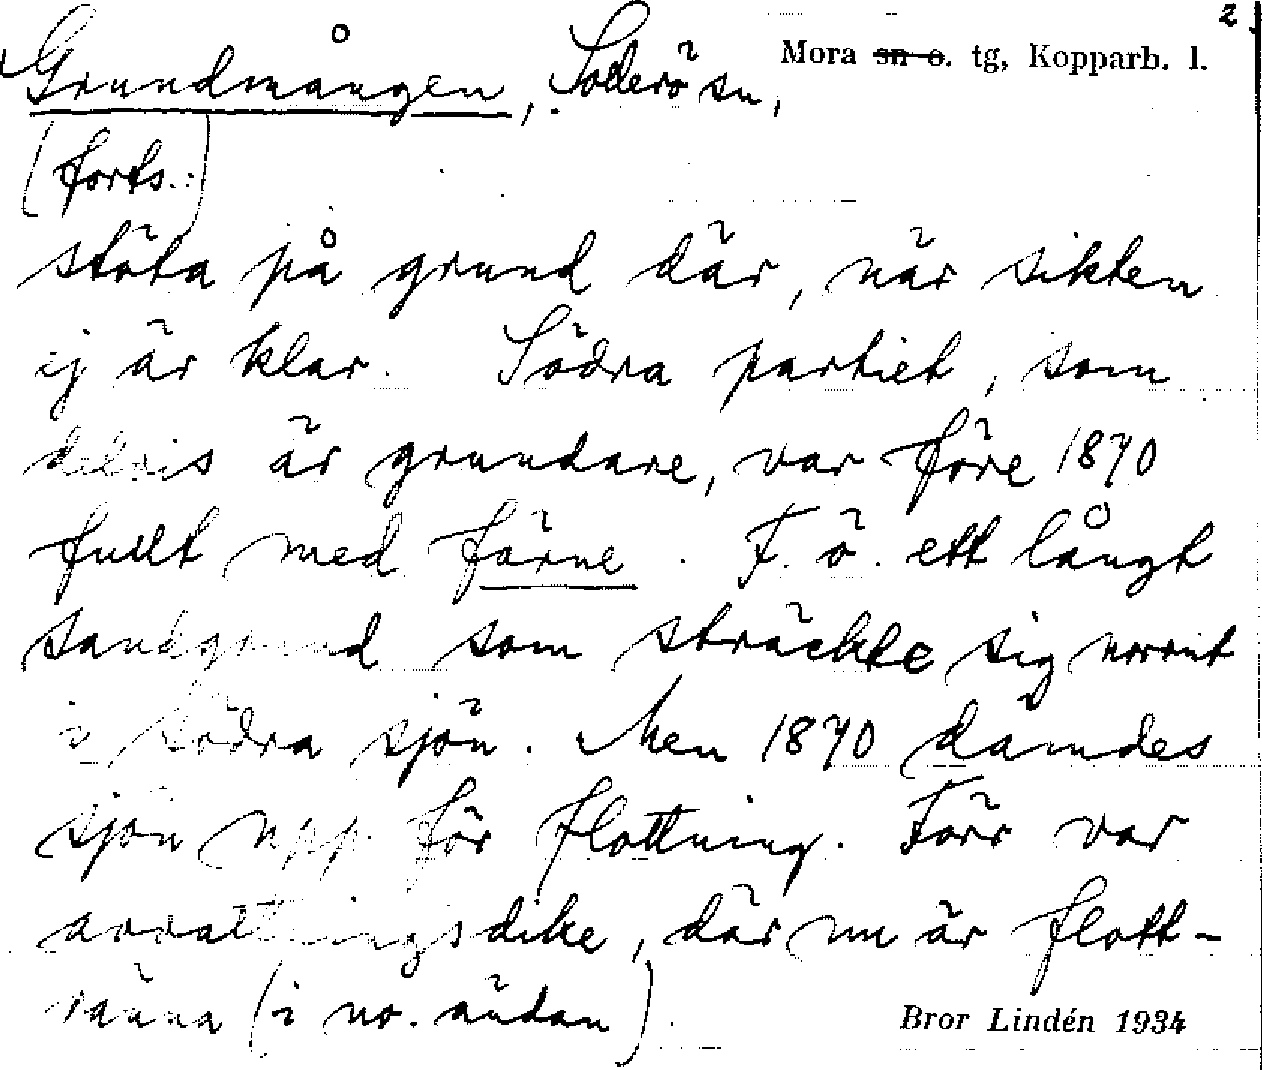 2
Grundmången, Söderö sn, Mora sn o. tg, Kopparb. l.
(forts.:)
stöta på grund där, när sikten
ej är klar. Södra partiet, som
delvis är grundare, var före 1870
fullt med färne. F. ö. ett långt
sandgrund som sträckte sig norrut
i södra sjön. Men 1870 dämdes
sjön upp för flottning. Förr var
avvattningsdike, där nu är flott-
ränna (i no. ändan)
Bror Lindén 1934